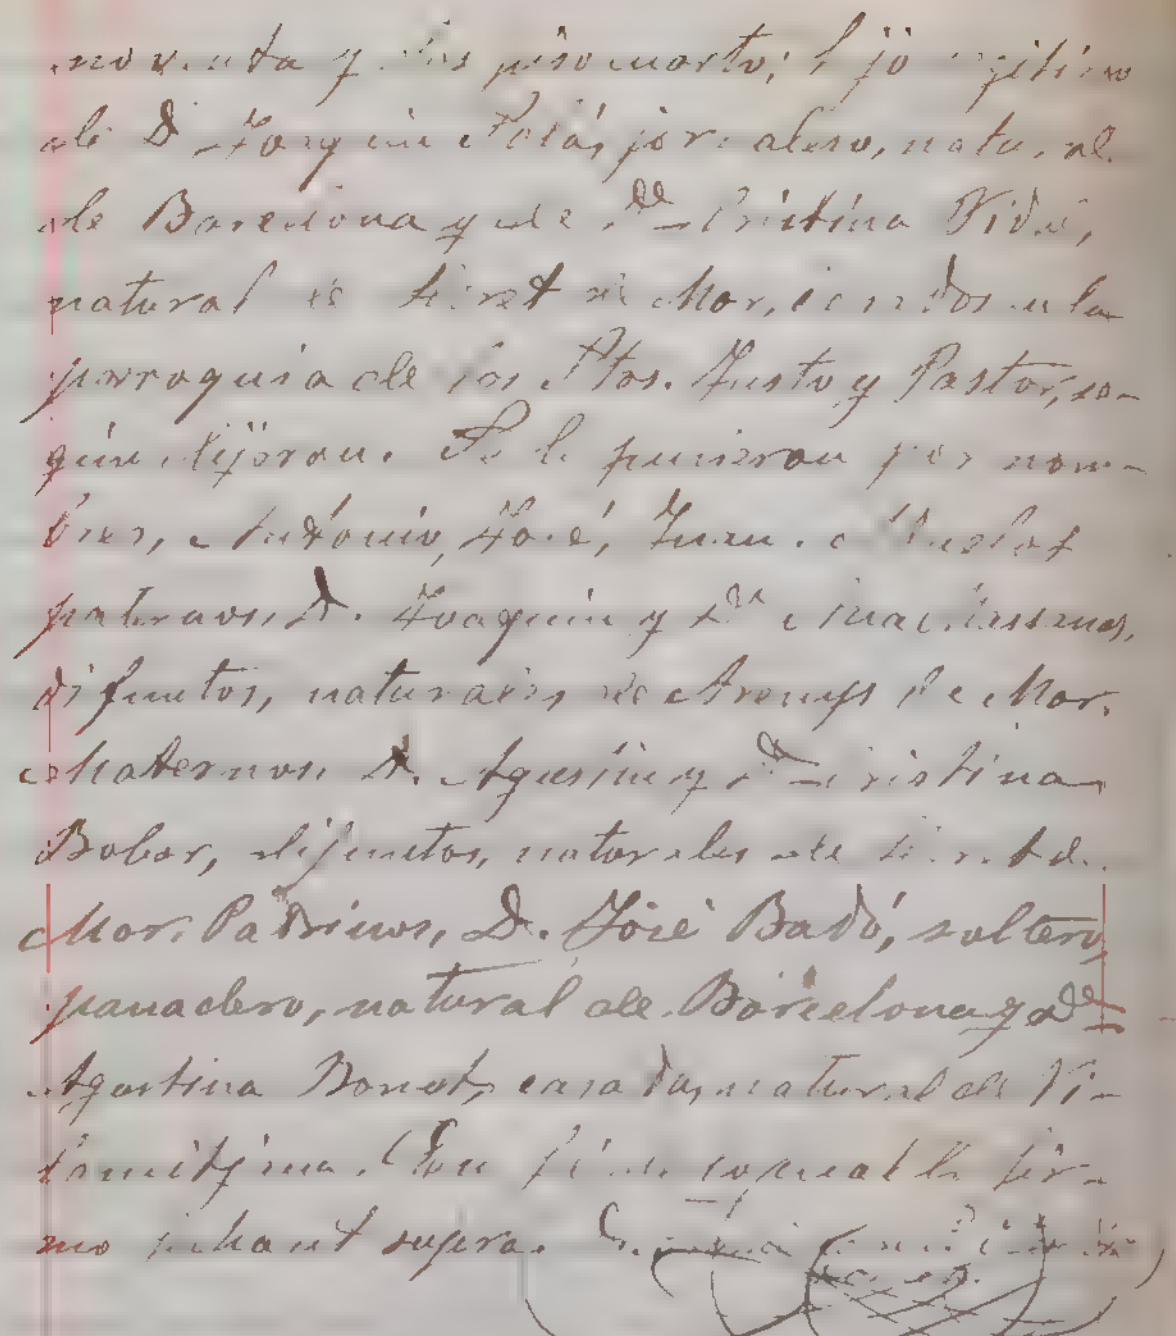 noventa y dos piso cuarto; hijo legitimo
de D. Joaquin Solá, jornalero, natural
de Barcelona y de Dª Cristina Vidal,
natural de Lloret de Mar, casados en la
parroquia de los Stos. Justo y Pastor, se-
gún dijeron. Se le pusieron por nom-
bres, Antonio, José, Juan. Abuelos
paternos, D. Joaquin y Dª
difuntos, naturales de Arenys de Mar.
Maternos, D. Agustin y Dª Cristina
Bobar, difuntos, naturales de Lloret de
Mar. Padrinos, D. José Badó, soltero,
panadero, natural de Barcelona y Dª
Agustina Bonet, casada, natural de Vi-
En fe de lo cual la fir-
mo fecha ut supra.